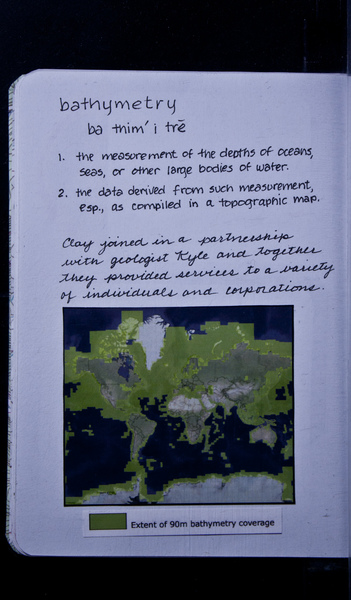 bathymetry
ba thim' i trē
1. the measurement of the depths of oceans,
seas, or other large bodies of water.
2. the data derived from such measurement,
esp., as compiled in a topographic map.
Clay joined in a partnership
with geologist Kyle and together
they provided services to a variety
of individuals and corporations.
Extent of 90m bathymetry coverage